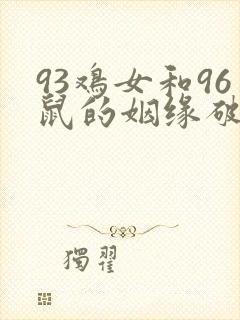 93鸡女和96
鼠的姻缘破
獨翟